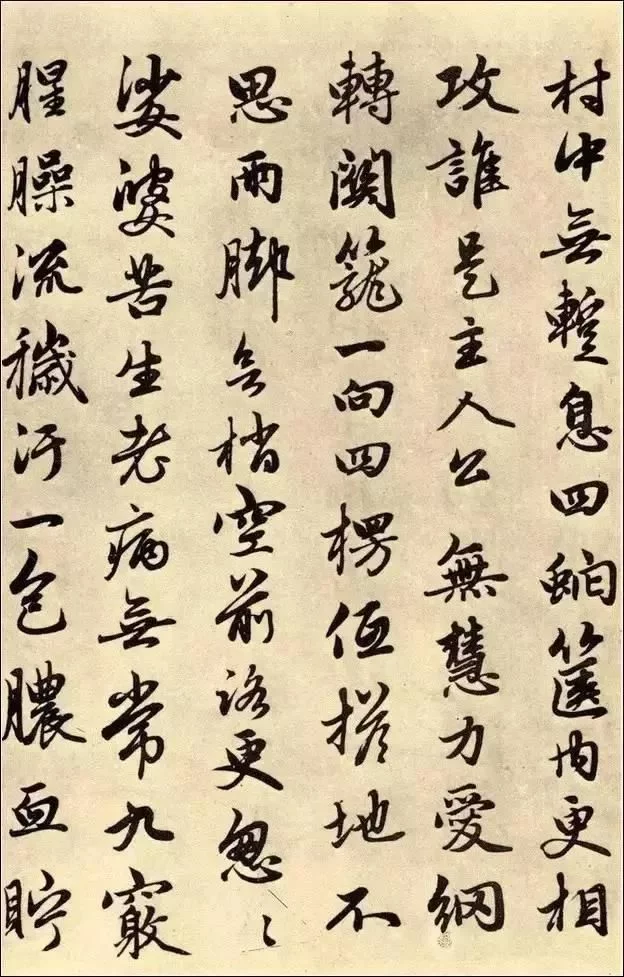 村中無暫息四虵篋內更相
攻誰是主人公無慧力愛網
轉關籠一向四楞但搭地不
思兩脚梢空前路更怱〻
娑婆苦生老病無常九竅
腥臊流穢汙一包膿血貯